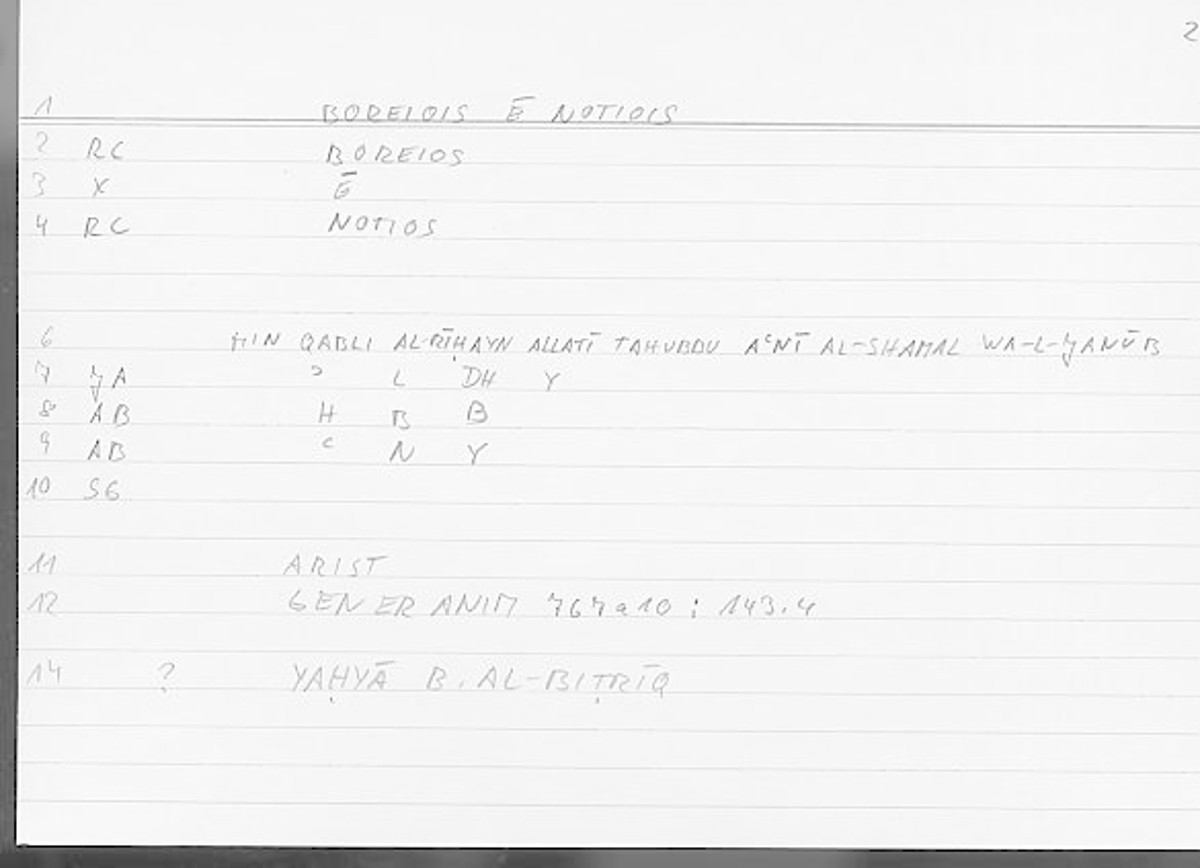 2
1 BOREIOIS Ē NOTIOIS
2 RC BOREIOS
3 X Ē
4 RC NOTIOS
6 MIN QABLI AL-RĪḤAYN ALLATĪ TAHUBBU AʿNĪ AL-SHAMAL WA-L-JANŪB
7 JA ʾ L DH Y
8 AB H B B
9 AB ʿ N Y
10 SG
11 ARIST
12 GENER ANIM 767a10 ; 143.4
14 ? YAḤYĀ B. AL-BIṬRĪQ